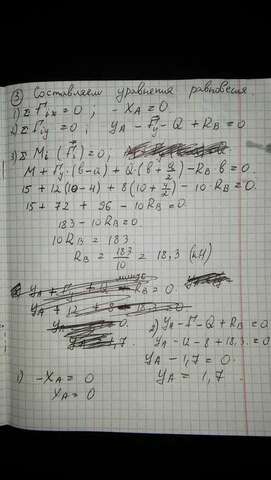 ③ Составляем уравнения равновесия.
1) Σ Fix = 0 ; -XA = 0
2) Σ Fiy = 0 ; YA - F - Q + RB = 0
3) Σ Mi (Fi) = 0 ;
M + Fy · (в-а) + Q (в + 4/2) - RB · в = 0
15 + 12(10-4) + 8(10 + 4/2) - 10 RB = 0
15 + 72 + 96 - 10RB = 0
183 - 10RB = 0
10RB = 183
RB = 183/10 = 18,3 (кН)
2) YA - F - Q + RB = 0
YA - 12 - 8 + 18,3 = 0
YA - 1,7 = 0
YA = 1,7
1) -XA = 0
XA = 0